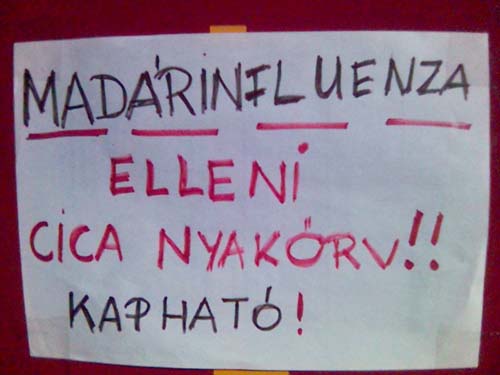 MADÁRINFLUENZA
ELLENI
CICA NYAKÖRV!!
KAPHATÓ!